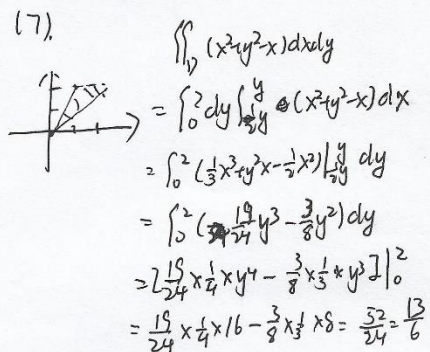 (7).
∬_D (x²+y²-x)dxdy
= ∫₀² dy ∫_{½y}^{y} (x²+y²-x)dx
= ∫₀² (⅓x³+y²x-½x²)|_{½y}^{y} dy
= ∫₀² (19/24 y³ - 3/8 y²)dy
= [19/24 × 1/4 × y⁴ - 3/8 × 1/3 × y³]|₀²
= 19/24 × 1/4 × 16 - 3/8 × 1/3 × 8 = 52/24 = 13/6